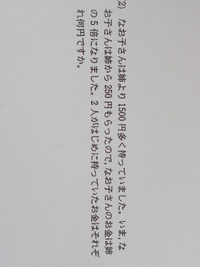 (2) なお子さんは姉より1500円多く持っていました。いま,な
お子さんは姉から250円もらったので,なお子さんのお金は姉
の5倍になりました。2人がはじめに持っていたお金はそれぞ
れ何円ですか。